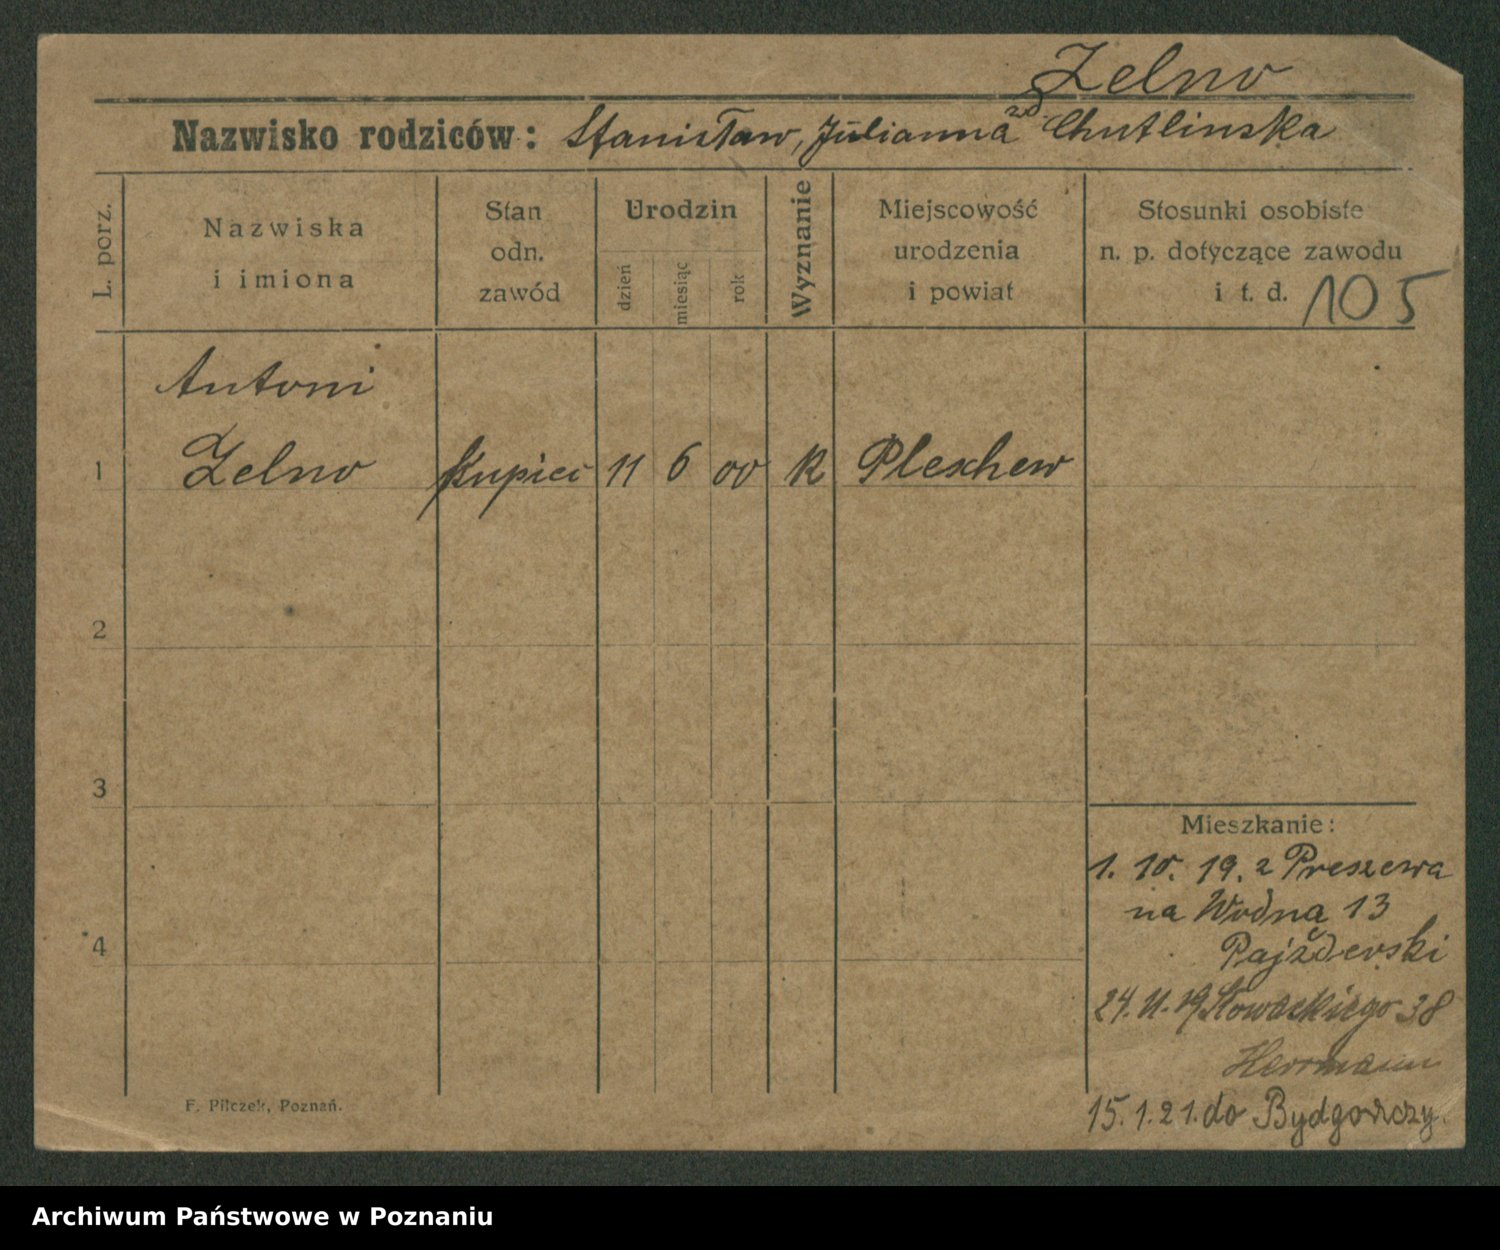 Zelno
Nazwisko rodziców: Stanisław, Julianna zd. Chutlinska
L. porz.
Nazwiska
i imiona
Stan
odn.
zawód
Urodzin
dzień
miesiąc
rok
Wyznanie
Miejscowość
urodzenia
i powiat
Stosunki osobiste
n. p. dotyczące zawodu
i t. d. 105
Antoni
1 Zelno Kupiec 11 6 00 K Pleschew
2
3
4
Mieszkanie:
1. 10. 19. z Preszewa
na Wodna 13
Pajżderski
24. 11. 19 Słowackiego 38
Herrmann
15. 1. 21. do Bydgoszczy.
F. Pilczek, Poznań.
Archiwum Państwowe w Poznaniu